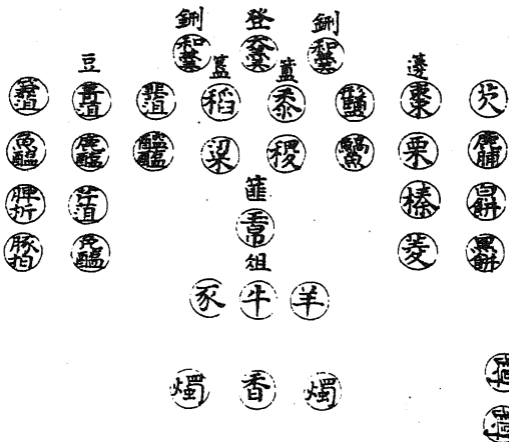 鉶 登 鉶
和羹 太羹 和羹
豆 簠 簋 籩
筍菹 菁菹 韭菹 稻 黍 鹽 棗 芡
魚醢 鹿醢 醓醢 粱 稷 栗 鹿脯
脾折 芹菹 篚 榛 白餅
豚拍 兔醢 帛 菱 黑餅
俎
豕 牛 羊
燭 香 燭